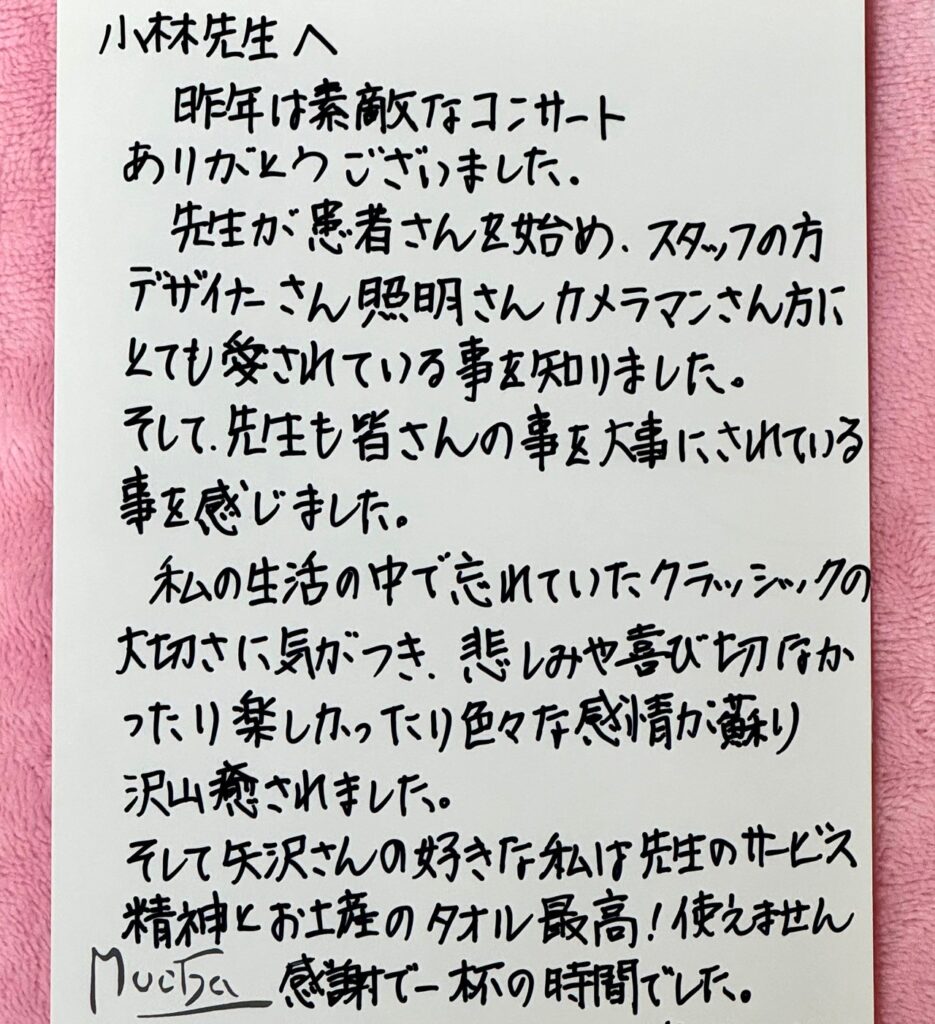 小林先生へ
昨年は素敵なコンサート
ありがとうございました.
先生が患者さんを始め、スタッフの方
デザイナーさん照明さんカメラマンさん方に
とても愛されている事を知りました。
そして、先生も皆さんの事を大事にされている
事を感じました。
私の生活の中で忘れていたクラッシックの
大切さに気がつき、悲しみや喜び切なか
ったり楽しかったり色々な感情が蘇り
沢山癒されました。
そして矢沢さんの好きな私は先生のサービス
精神とお土産のタオル最高!使えません
感謝で一杯の時間でした。